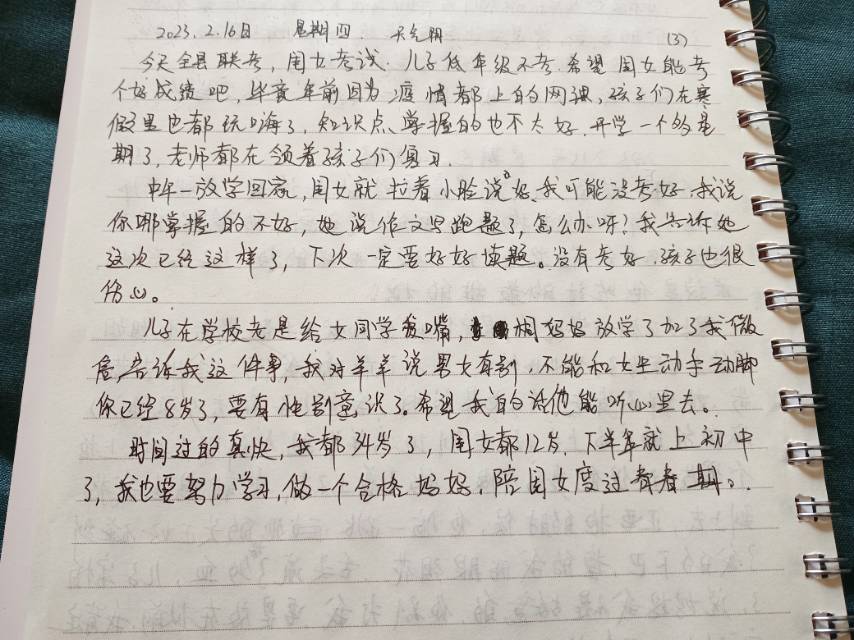 2023.2.16日 星期四 天气阴 (3)
今天全县联考,闺女考试.儿子低年级不考.希望闺女能考
个好成绩吧,毕竟年前因为疫情都上的网课,孩子们在寒
假里也都玩嗨了,知识点掌握的也不太好.开学一个多星
期了,老师都在领着孩子们复习.
中午一放学回家,闺女就拉着小脸说:妈、我可能没考好.我说
你哪掌握的不好,她说作文写跑题了,怎么办呀?我告诉她
这次已经这样了,下次一定要好好读题。没有考好.孩子也很
伤心。
儿子在学校老是给女同学我嘴, 桐妈妈放学了加了我微
信,告诉我这件事,我对羊羊说男女有别.不能和女生动手动脚
你已经8岁了,要有性别意识了。希望我的话他能听心里去。
时间过的真快,我都34岁了,闺女都12岁.下半年就上初中
了,我也要努力学习,做一个合格妈妈,陪闺女度过青春期。